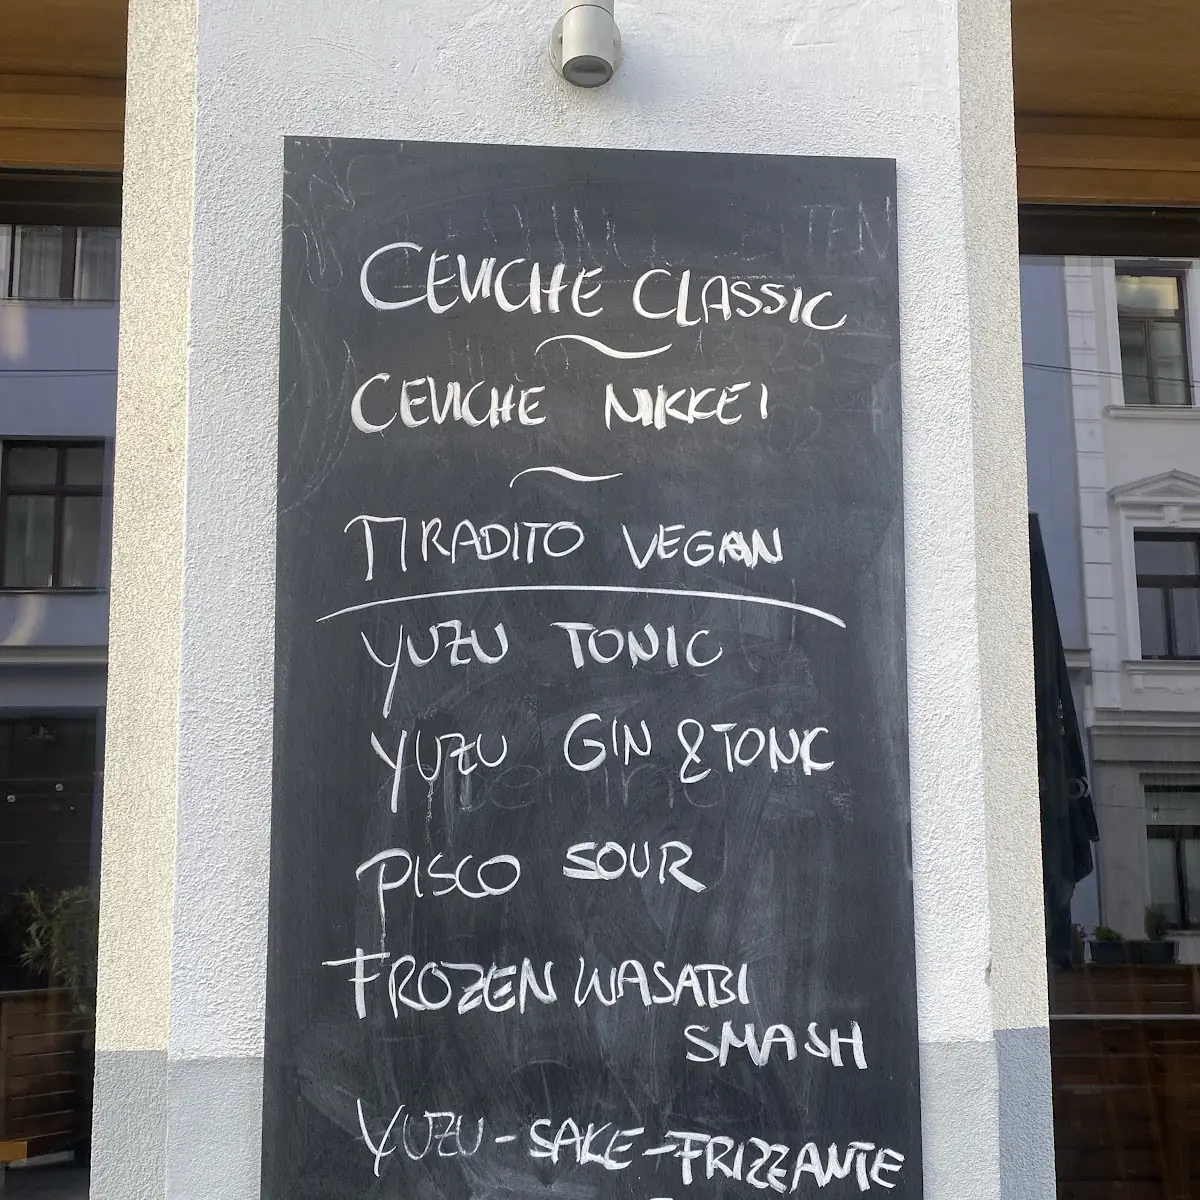 CEVICHE CLASSIC
CEVICHE NIKKEI
TIRADITO VEGAN
YUZU TONIC
YUZU GIN & TONIC
PISCO SOUR
FROZEN WASABI
SMASH
YUZU-SAKE-FRIZZANTE